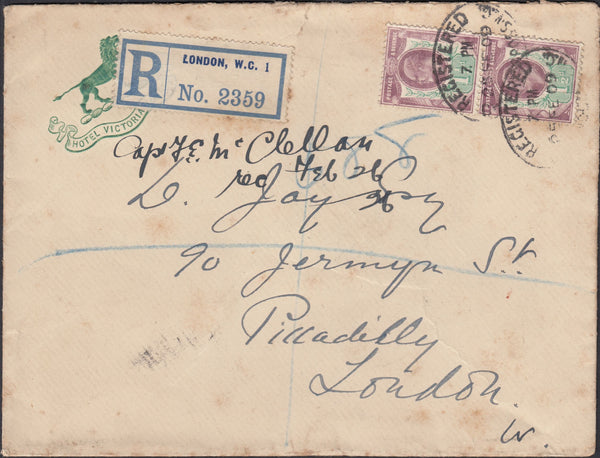 HOTEL VICTORIA
R
LONDON, W.C. 1
No. 2359
REGISTERED
7 PM
REGISTERED
7 PM
Capt F.E. McClellan
rec Feb 26
D. Jay
90 Jermyn St.
Piccadilly
London.
W.